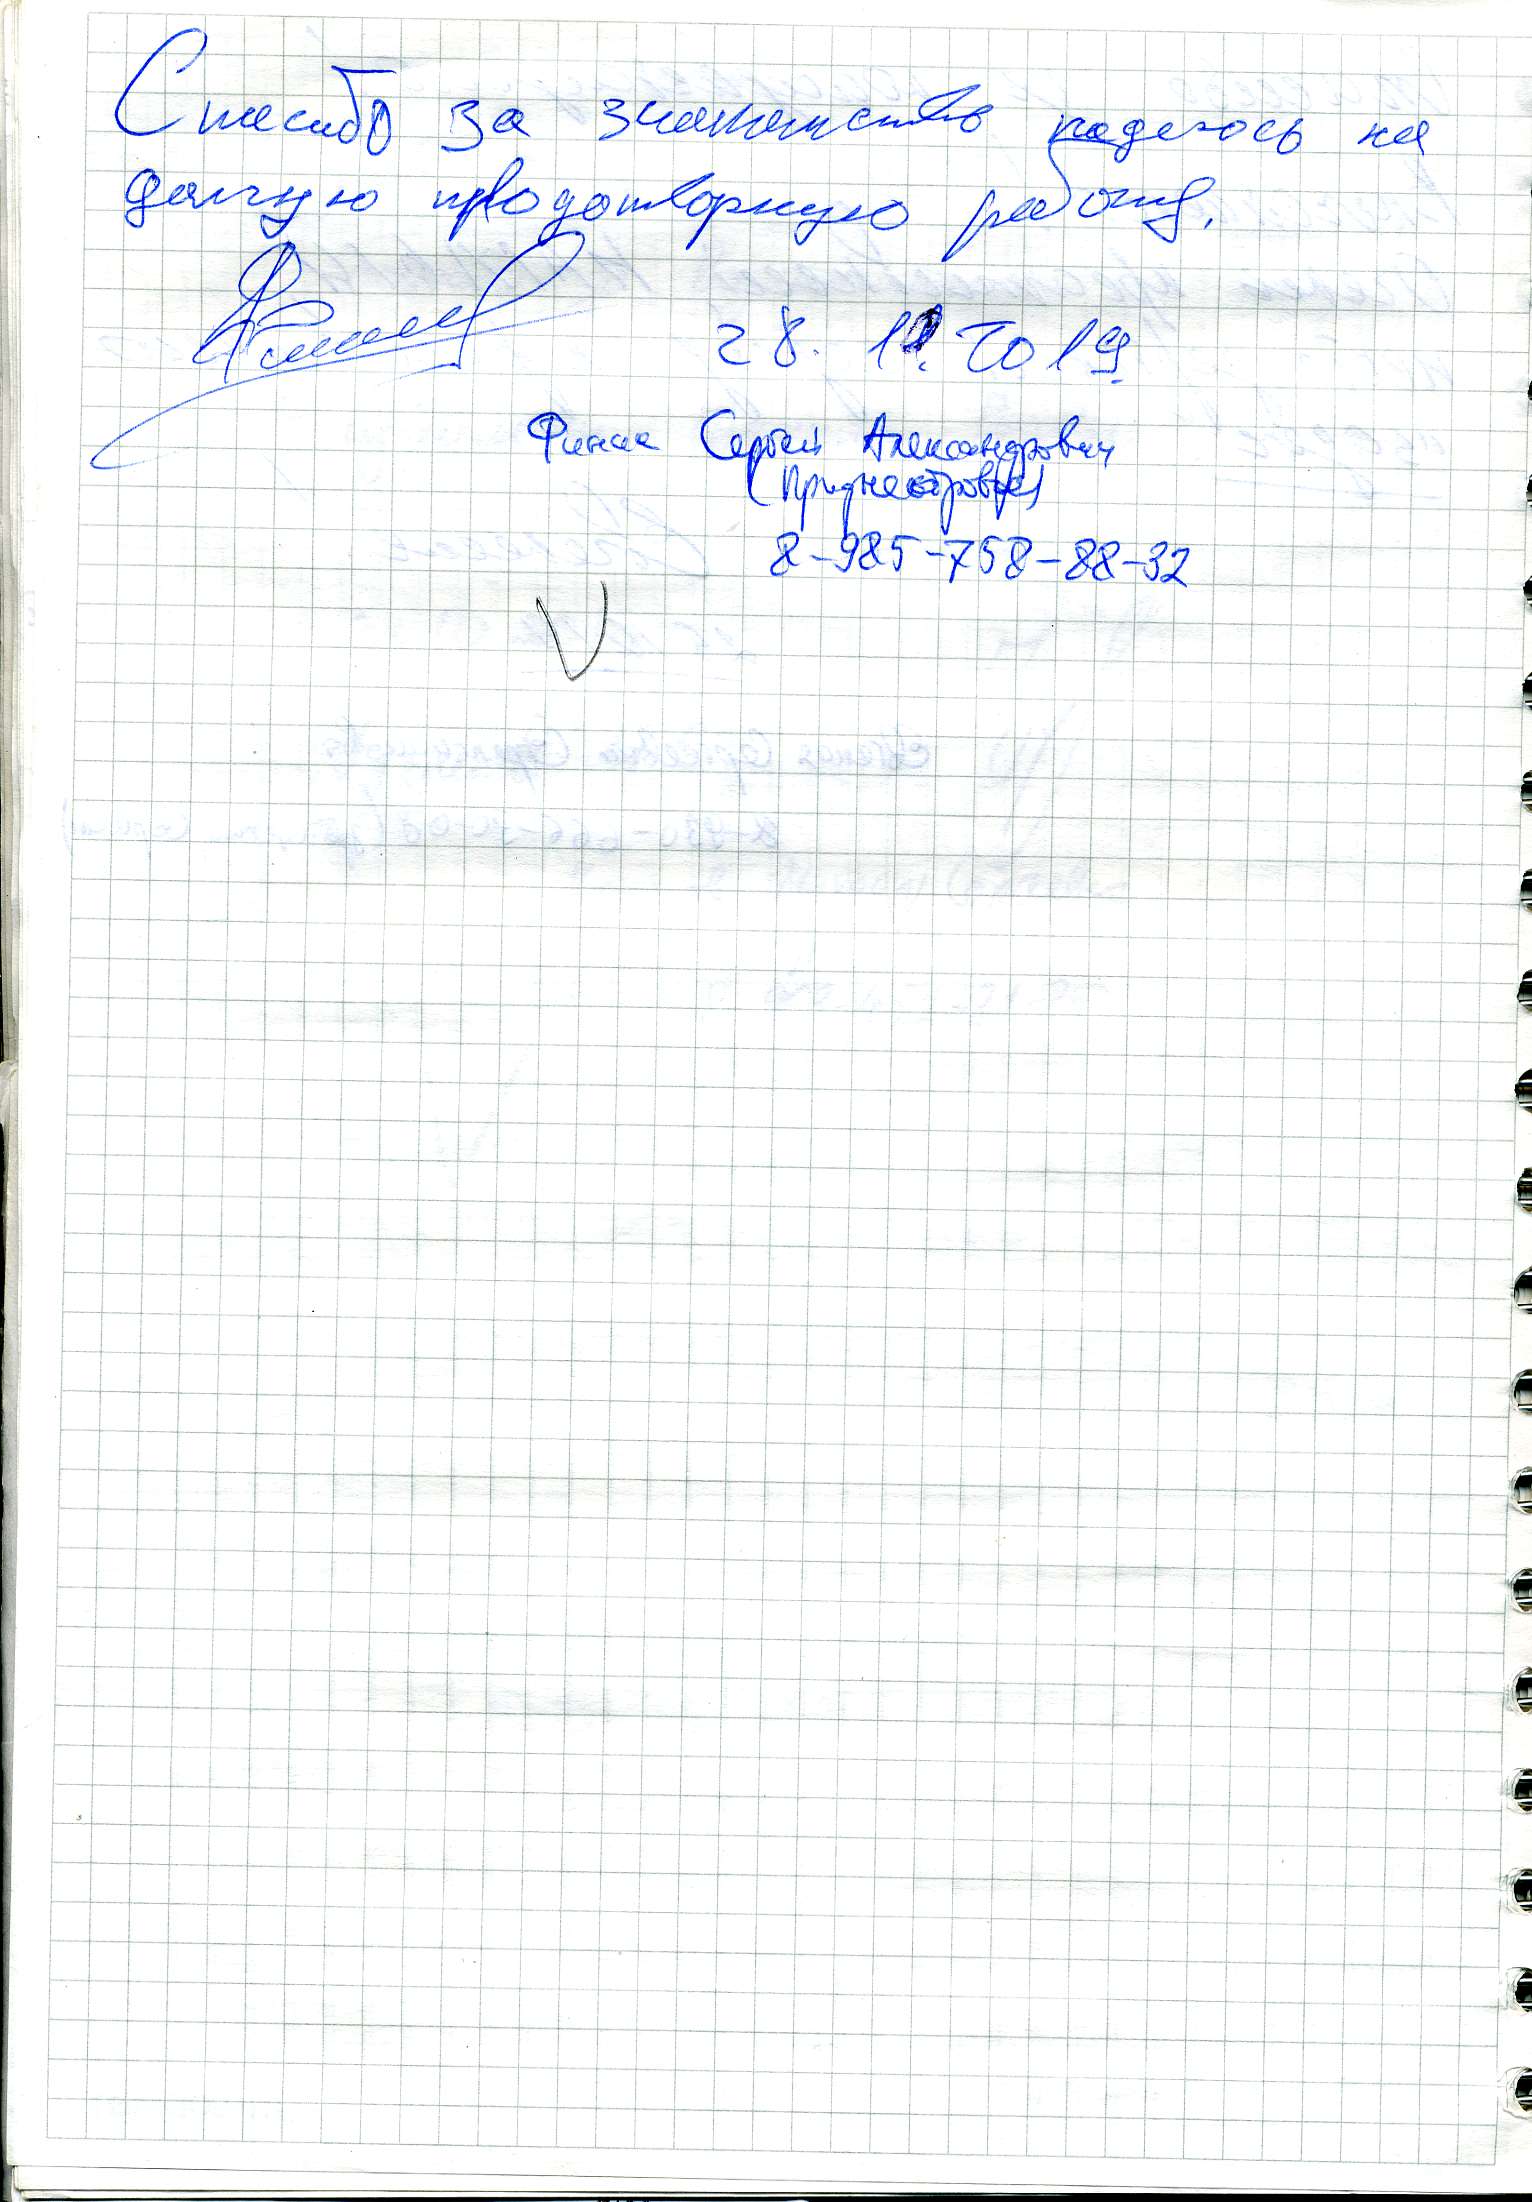 Спасибо за знакомство надеюсь на
долгую плодотворную работу.
28. 11. 2019
Сергей Александрович
(Приднестровье)
8-985-758-88-32